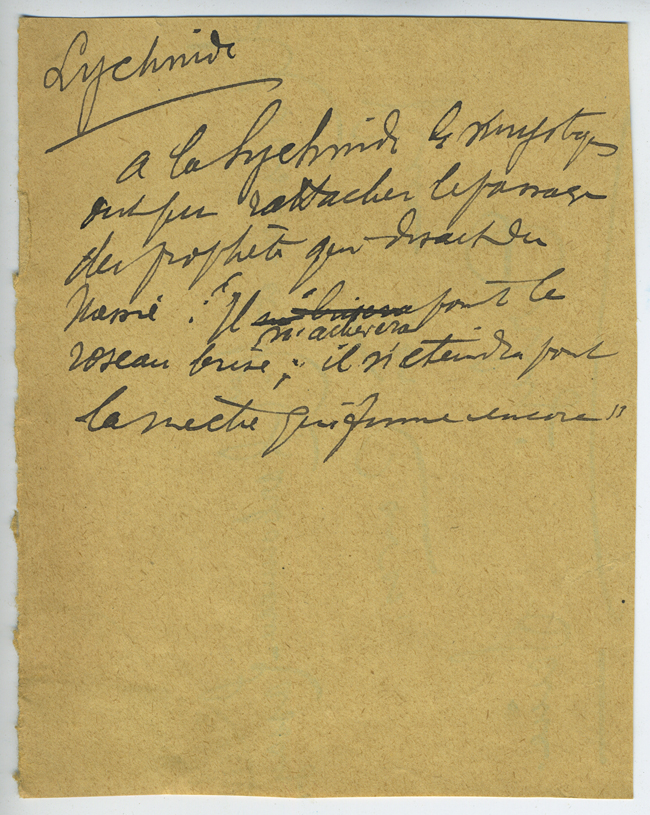 Lychnide
A la Lychnide les mystiques
ont pu rattacher le passage
des prophètes qui disait du
Messie : "Il ne brisera point le
n'achèvera
roseau brisé ; il n'éteindra point
la mèche qui fume encore"